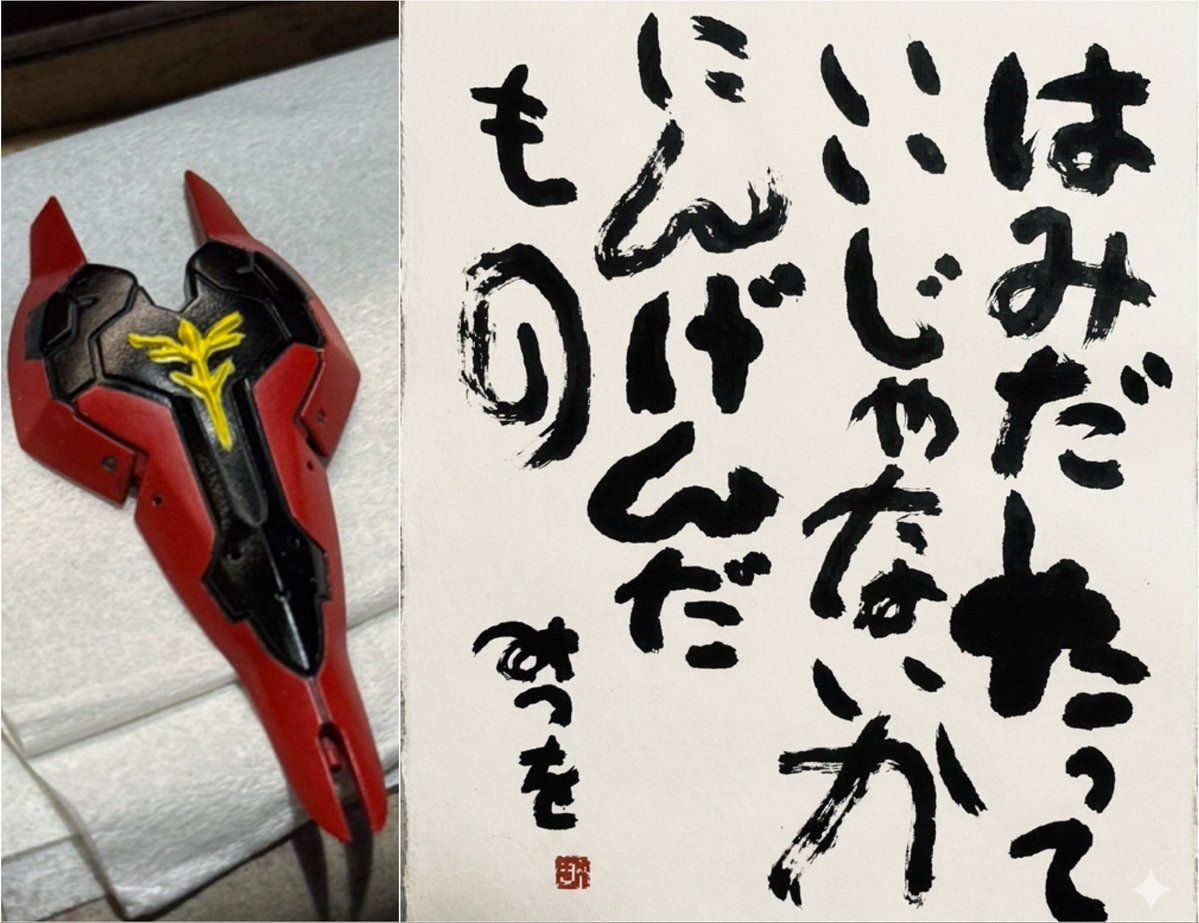 はみだしたって
いいじゃないか
にんげんだ
もの
みつを